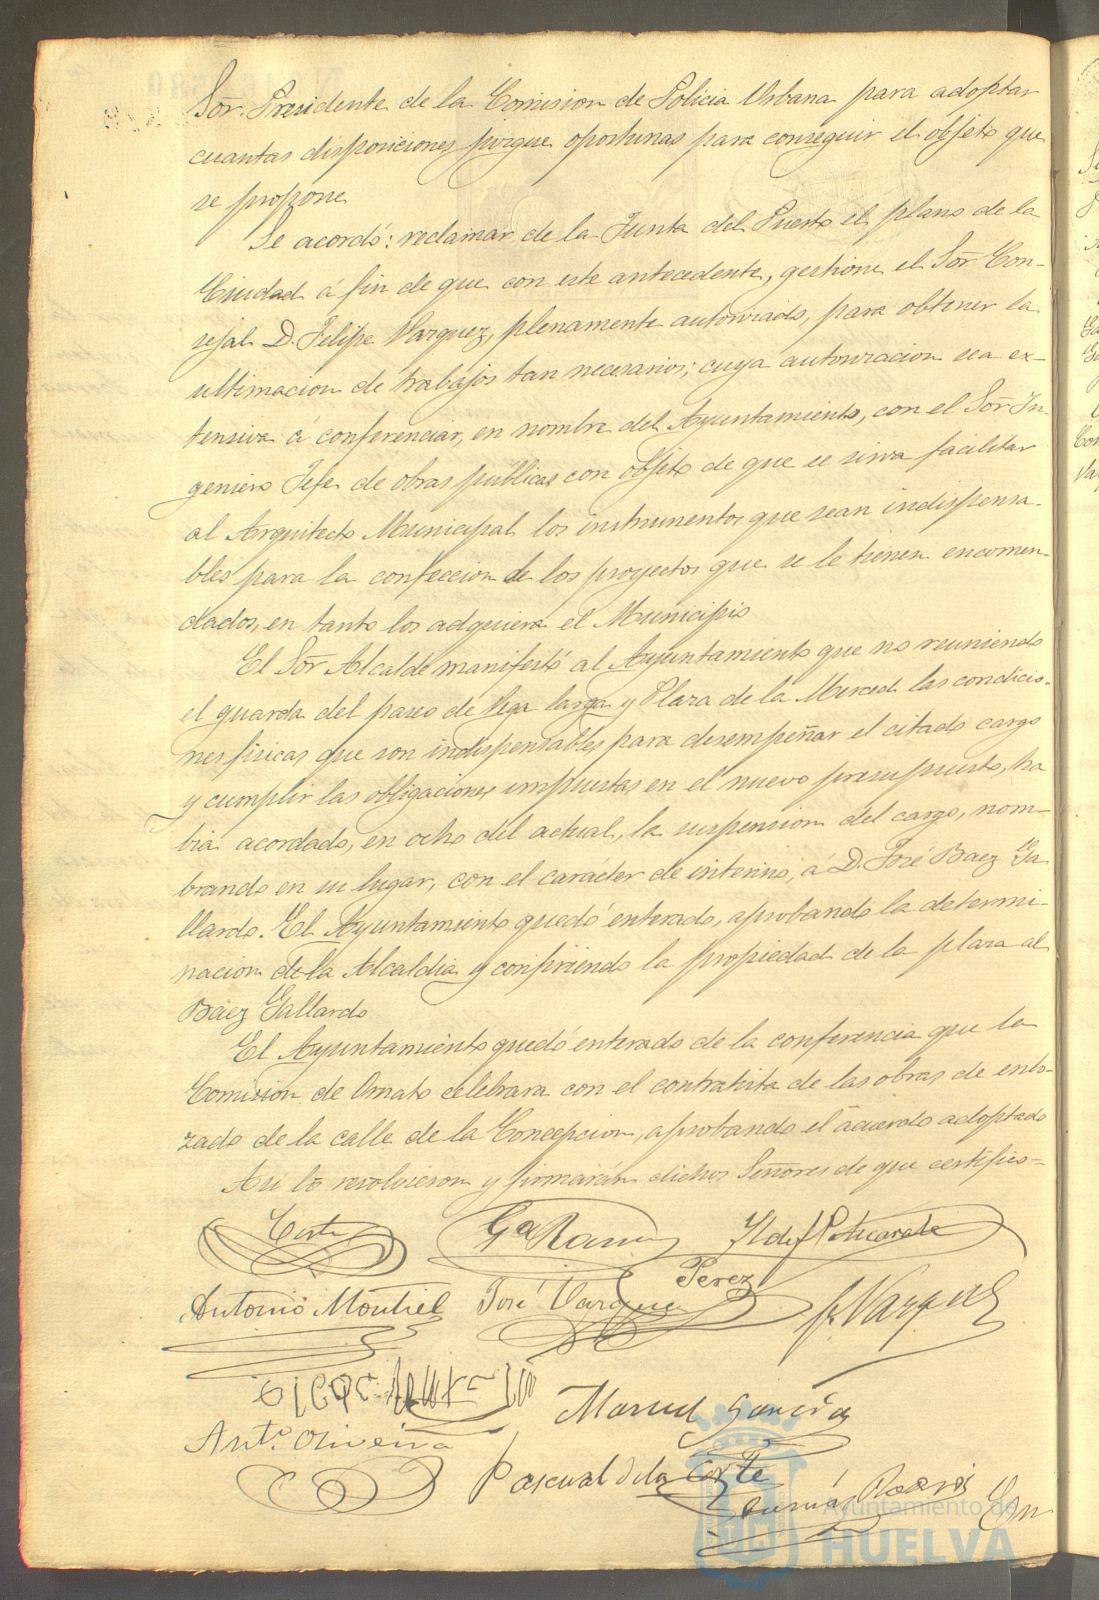 Sor. Presidente de la Comision de Policia Urbana para adoptar
cuantas disposiciones juzgue oportunas para conseguir el objeto que
se propone
Se acordó: reclamar de la Junta del Puerto el plano de la
Ciudad á fin de que con este antecedente, gestione el Sor. Con-
sejal D. Felipe Vazquez, plenamente autorizado, para obtener la
ultimacion de trabajos tan necesarios; cuya autorizacion sea ex-
tensiva á conferenciar, en nombre del Ayuntamiento, con el Sor. In-
geniero Jefe de obras públicas con objeto de que se sirva facilitar
al Arquitecto Municipal los instrumentos que sean indispensa-
bles para la confeccion de los proyectos que se le tienen encomen-
dados, en tanto los adquiera el Municipio
El Sor. Alcalde manifestó al Ayuntamiento que no reuniendo
el guarda del paseo de Vega larga y Plaza de la Merced las condicio-
nes fisicas que son indispensables para desempeñar el citado cargo
y cumplir las obligaciones impuestas en el nuevo presupuesto, ha
bia acordado, en ocho del actual, la suspension del cargo, nom-
brando en su lugar, con el carácter de interino, á D. José Baez Ga
llardo. El Ayuntamiento quedó enterado, aprobando la determi-
nacion de la Alcaldia y confiriendo la propiedad de la plaza al
Báez Gallardo
El Ayuntamiento quedó enterado de la conferencia que la
Comision de Ornato celebrara con el contratista de las obras de enlo-
zado de la calle de la Concepcion, aprobando el acuerdo adoptado
Asi lo resolvieron y firmarán dichos Señores de que certifico=
Corte Ga Ramu
Antonio Montiel José Vazquez Perez F. Vazquez
Manuel Garcia
Anto. Oliveira
Pascual de la Corte
Ayuntamiento de
HUELVA